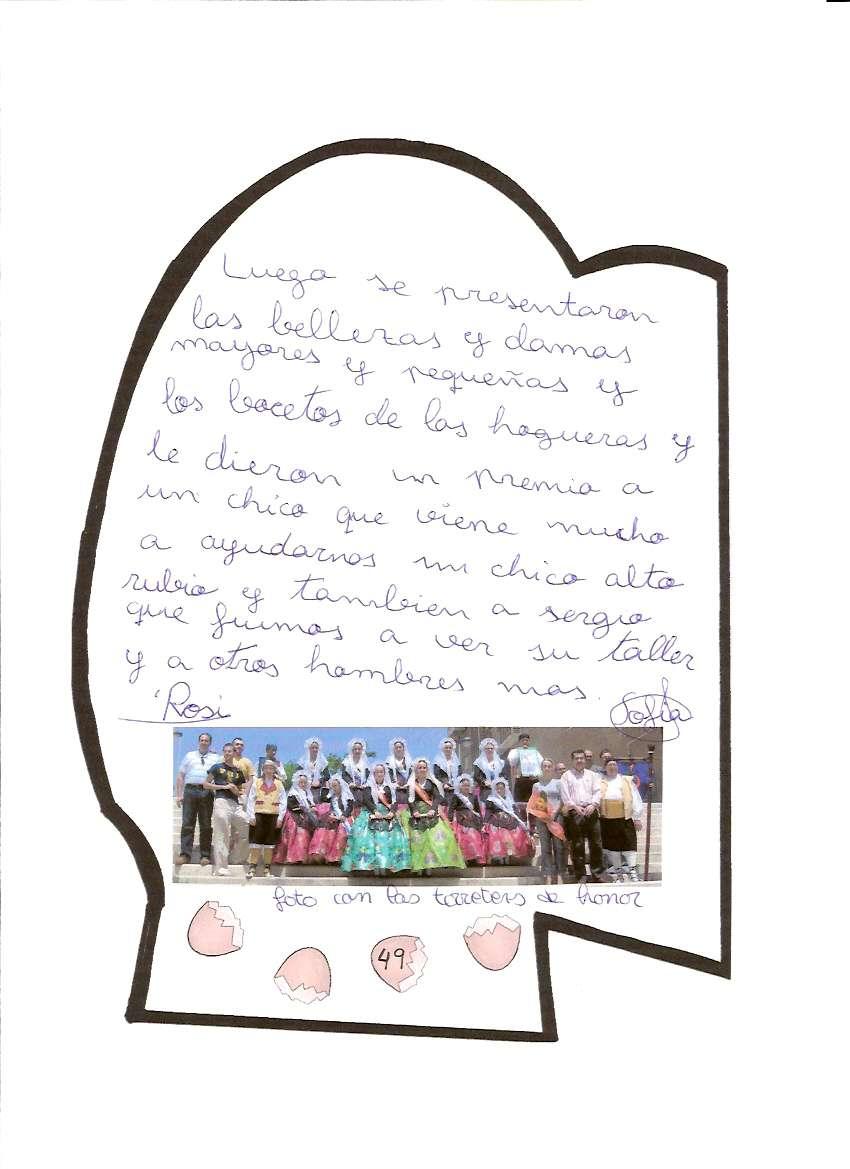 Luego se presentaron
las bellezas y damas
mayores y pequeñas y
los bocetos de las hogueras y
le dieron un premio a
un chico que viene mucho
a ayudarnos un chico alto
rubio y tambien a sergio
que fuimos a ver su taller
y a otros hombres mas.
Rosi Sofía
foto con las torreters de honor
49